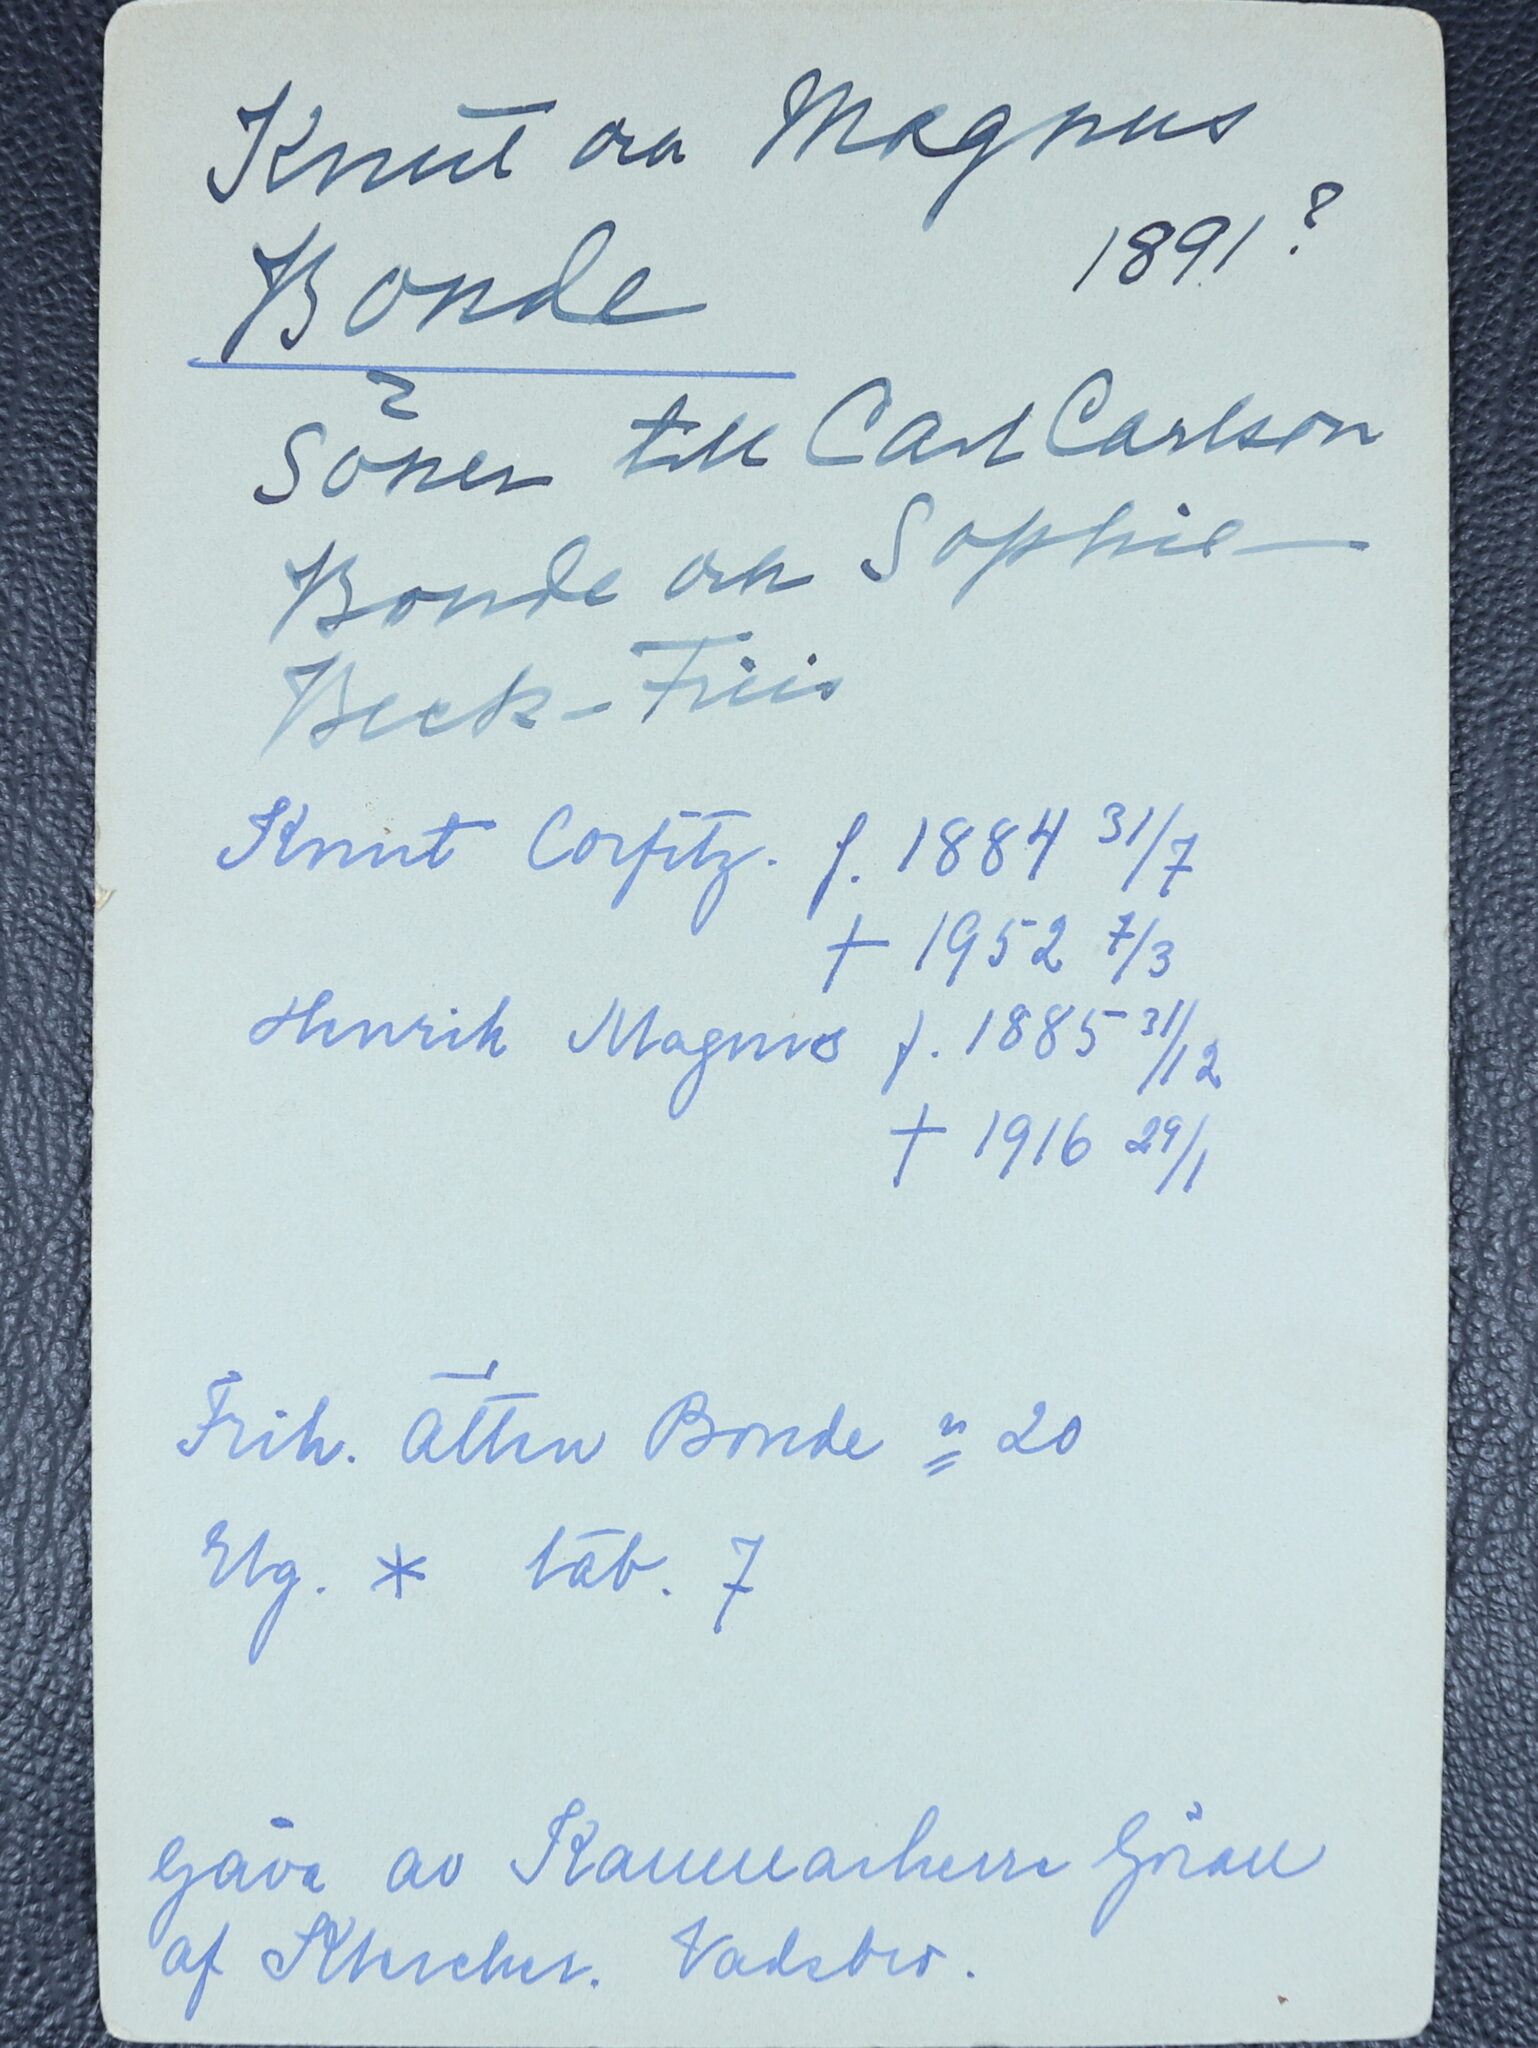 Knut och Magnus
Bonde 1891?
Söner till Carl Carlson
Bonde och Sophie
Beck-Friis
Knut Corfitz. f. 1884 31/7
† 1952 7/3
Henrik Magnus f. 1885 31/12
† 1916 29/1
Frih. ätten Bonde n 20
Elg. * tab. 7
Gåva av Kammarherre Göran
af Klercker. Vadsbro.